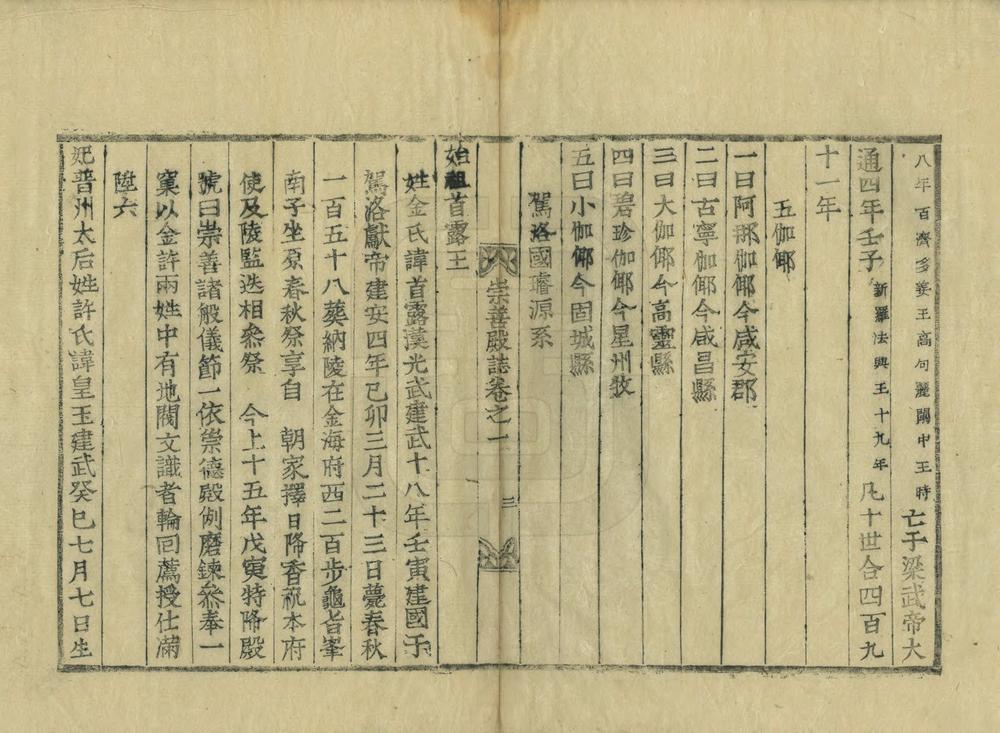 八年百濟多婁王高句麗閔中王時亡于梁武帝大
通四年壬子新羅法興王十九年凡十世合四百九
十一年
五伽倻
一曰阿那伽倻今咸安郡
二曰古寧伽倻今咸昌縣
三曰大伽倻今高靈縣
四曰碧珍伽倻今星州牧
五曰小伽倻今固城縣
駕洛國璿源系
崇善殿誌卷之一 三
始祖首露王
姓金氏諱首露漢光武建武十八年壬寅建國于
駕洛獻帝建安四年己卯三月二十三日薨春秋
一百五十八葬納陵在金海府西二百步龜旨峯
南子坐原春秋祭享自 朝家擇日降香祝本府
使及陵監迭相叅祭 今上十五年戊寅特降殿
號曰崇善諸般儀節一依崇德殿例磨鍊叅奉一
窠以金許兩姓中有地閥文識者輪回薦授仕滿
陞六
妃普州太后姓許氏諱皇玉建武癸巳七月七日生